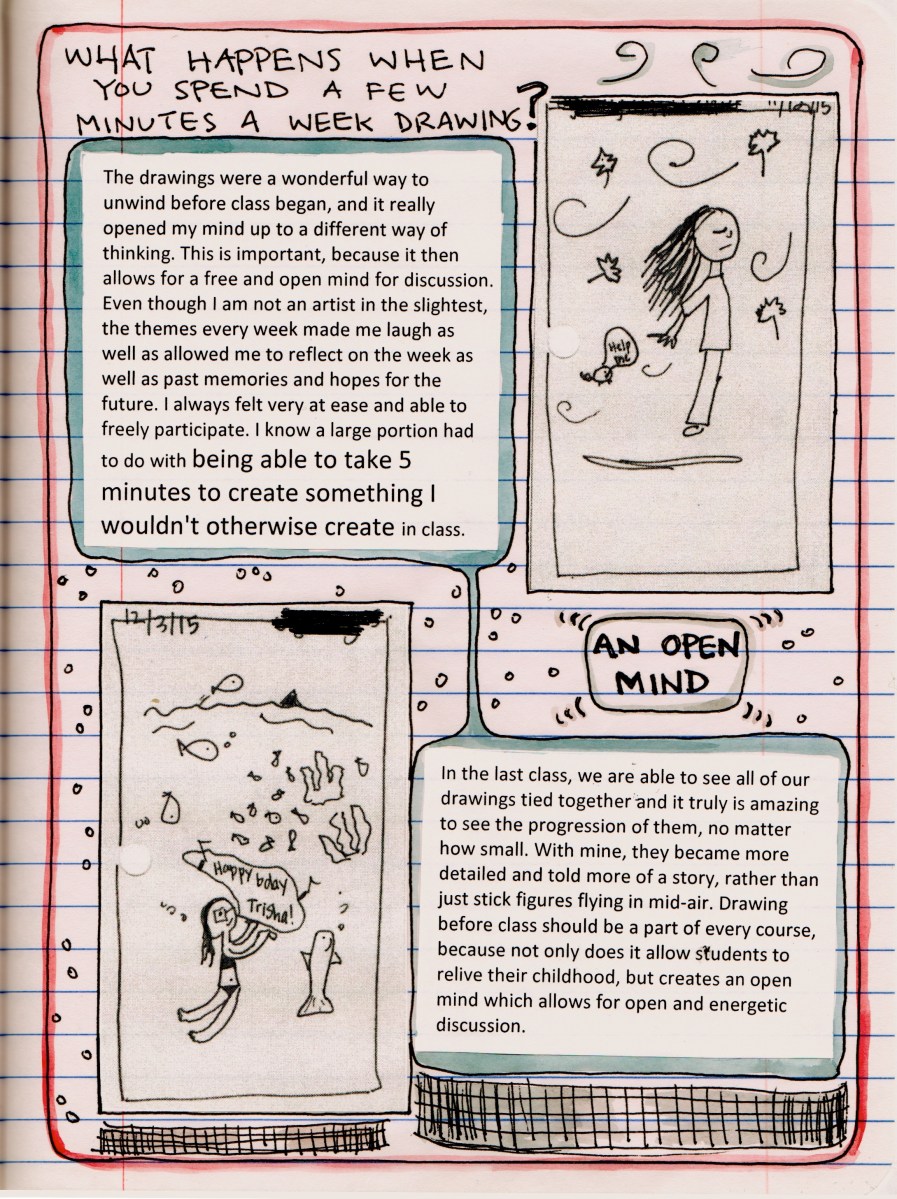 WHAT HAPPENS WHEN
YOU SPEND A FEW
MINUTES A WEEK DRAWING?
The drawings were a wonderful way to
unwind before class began, and it really
opened my mind up to a different way of
thinking. This is important, because it then
allows for a free and open mind for discussion.
Even though I am not an artist in the slightest,
the themes every week made me laugh as
well as allowed me to reflect on the week as
well as past memories and hopes for the
future. I always felt very at ease and able to
freely participate. I know a large portion had
to do with being able to take 5
minutes to create something I
wouldn't otherwise create in class.
Help
me
12/3/15
Happy bday
Trisha!
AN OPEN
MIND
In the last class, we are able to see all of our
drawings tied together and it truly is amazing
to see the progression of them, no matter
how small. With mine, they became more
detailed and told more of a story, rather than
just stick figures flying in mid-air. Drawing
before class should be a part of every course,
because not only does it allow students to
relive their childhood, but creates an open
mind which allows for open and energetic
discussion.